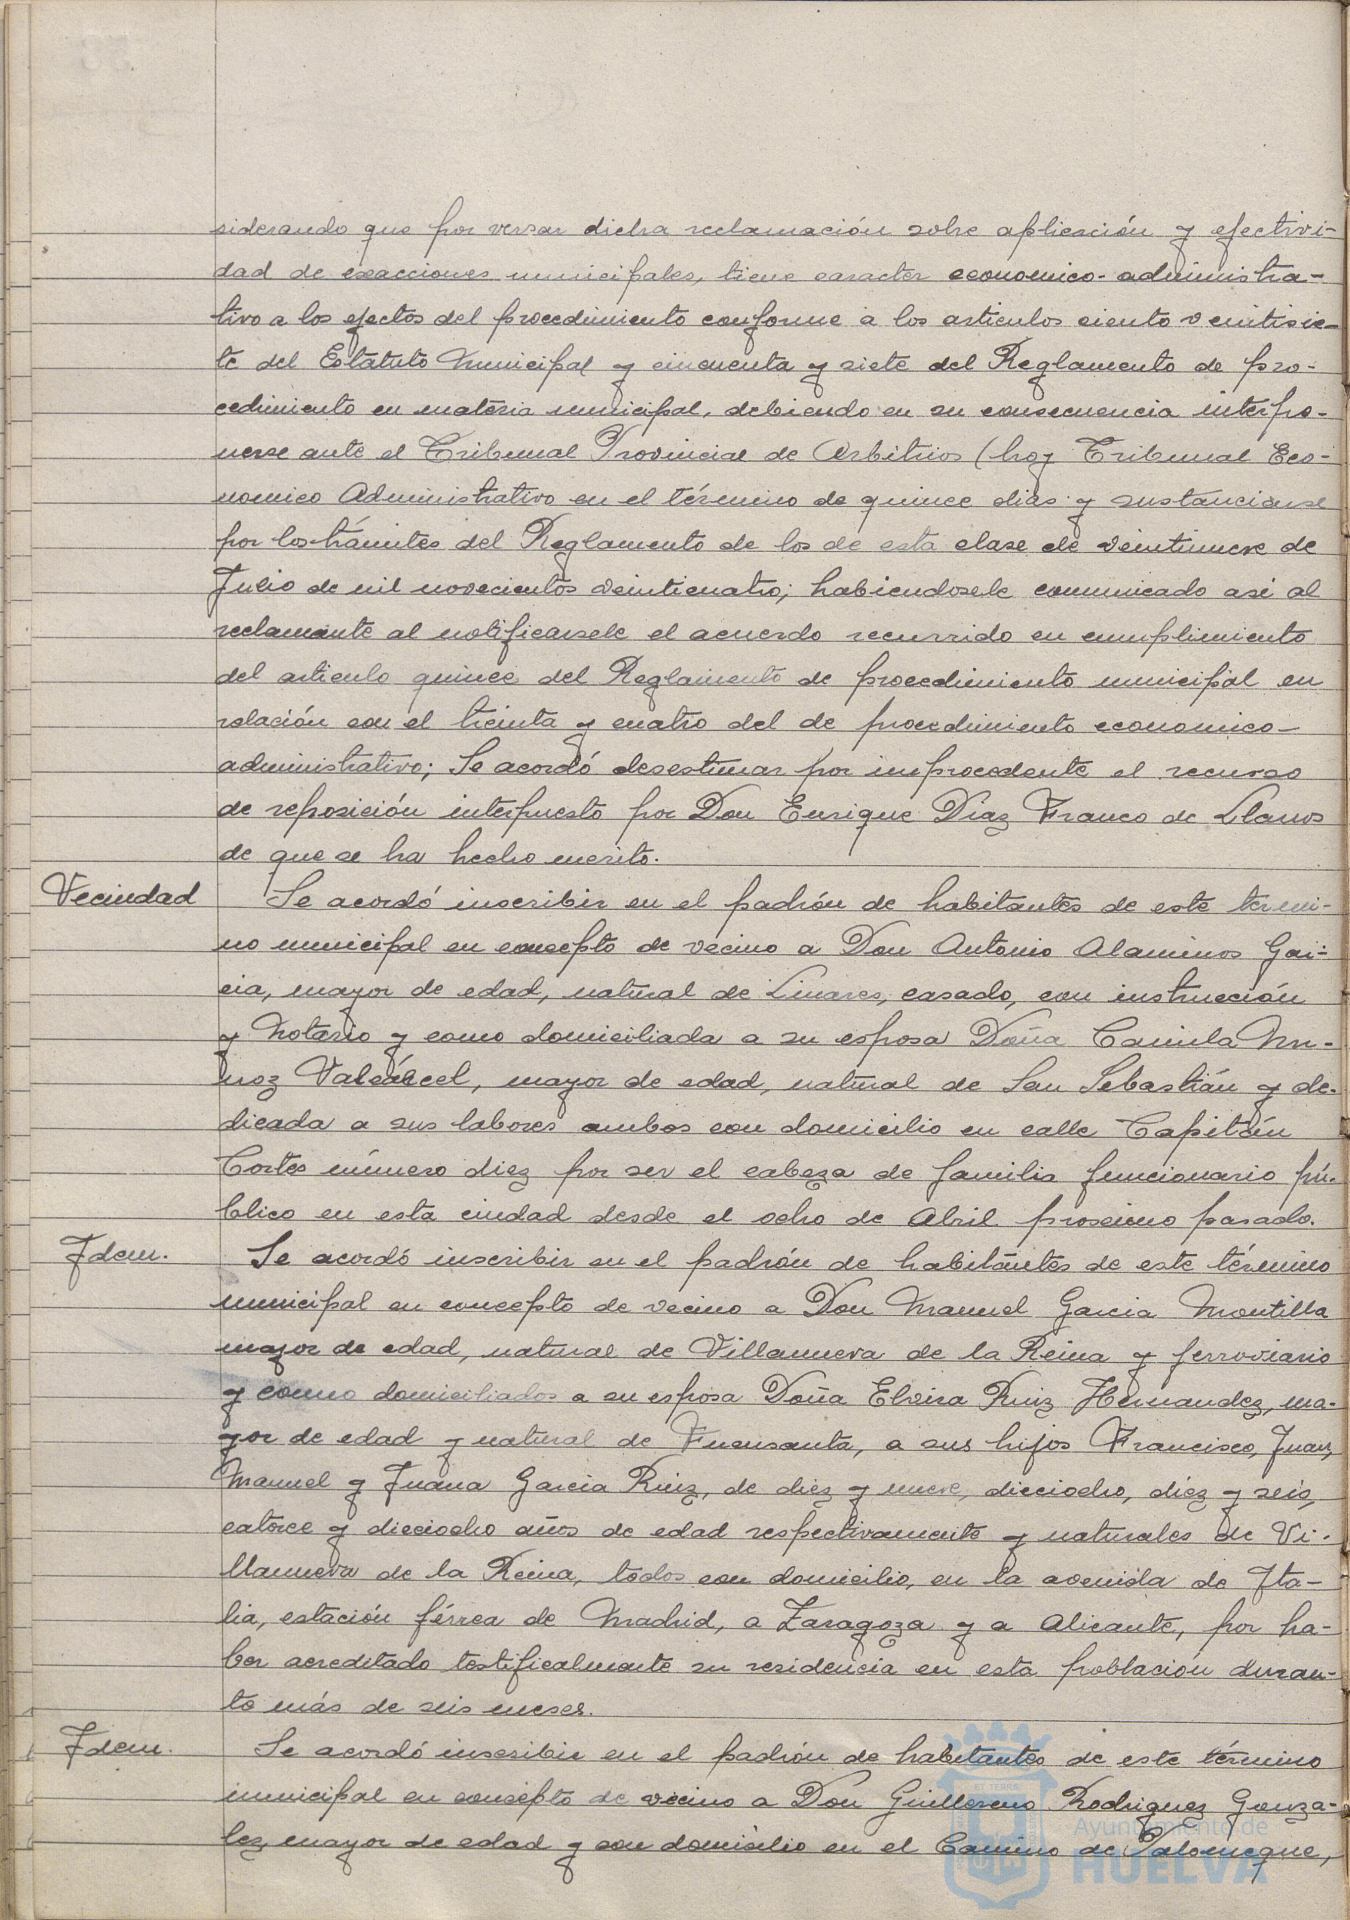 siderando que por versar dicha reclamación sobre aplicación y efectivi-
dad de exacciones municipales, tiene caracter economico-administra-
tivo a los efectos del procedimiento conforme a los articulos ciento veintisie-
te del Estatuto Municipal y cincuenta y siete del Reglamento de pro-
cedimiento en materia municipal, debiendo en su consecuencia interpo-
nerse ante el Tribunal Provincial de Arbitrios (hoy Tribunal Eco-
nomico Administrativo en el término de quince dias y sustanciarse
por los trámites del Reglamento de los de esta clase de veintinueve de
Julio de mil novecientos veinticuatro; habiendosele comunicado asi al
reclamante al notificarsele el acuerdo recurrido en cumplimiento
del articulo quince del Reglamento de procedimiento municipal en
relación con el treinta y cuatro del de procedimiento economico-
administrativo; Se acordó desestimar por improcedente el recurso
de reposición interpuesto por Don Enrique Diaz Franco de Llanos
de que se ha hecho merito.
Vecindad
Se acordó inscribir en el padrón de habitantes de este termi-
no municipal en concepto de vecino a Don Antonio Alaminos Gar-
cia, mayor de edad, natural de Linares, casado, con instrucción
y Notario y como domiciliada a su esposa Doña Camila Mu-
ñoz Valcárcel, mayor de edad, natural de San Sebastián y de-
dicada a sus labores ambos con domicilio en calle Capitán
Cortes número diez por ser el cabeza de familia funcionario pú-
blico en esta ciudad desde el ocho de Abril proximo pasado.
Idem.
Se acordó inscribir en el padrón de habitantes de este término
municipal en concepto de vecino a Don Manuel Garcia Montilla
mayor de edad, natural de Villanueva de la Reina y ferroviario
y como domiciliados a su esposa Doña Elvira Ruiz Hernandez, ma-
yor de edad y natural de Fuensanta, a sus hijos Francisco, Juan,
Manuel y Juana Garcia Ruiz, de diez y nueve, dieciocho, diez y seis,
catorce y dieciocho años de edad respectivamente y naturales de Vi-
llanueva de la Reina, todos con domicilio, en la avenida de Ita-
lia, estación férrea de Madrid, a Zaragoza y a Alicante, por ha-
ber acreditado testificalmente su residencia en esta población duran-
te más de seis meses.
Idem.
Se acordó inscribir en el padrón de habitantes de este término
municipal en concepto de vecino a Don Guillermo Rodriguez Gonza-
lez mayor de edad y con domicilio en el Camino de Palomeque,
Ayuntamiento de
HUELVA